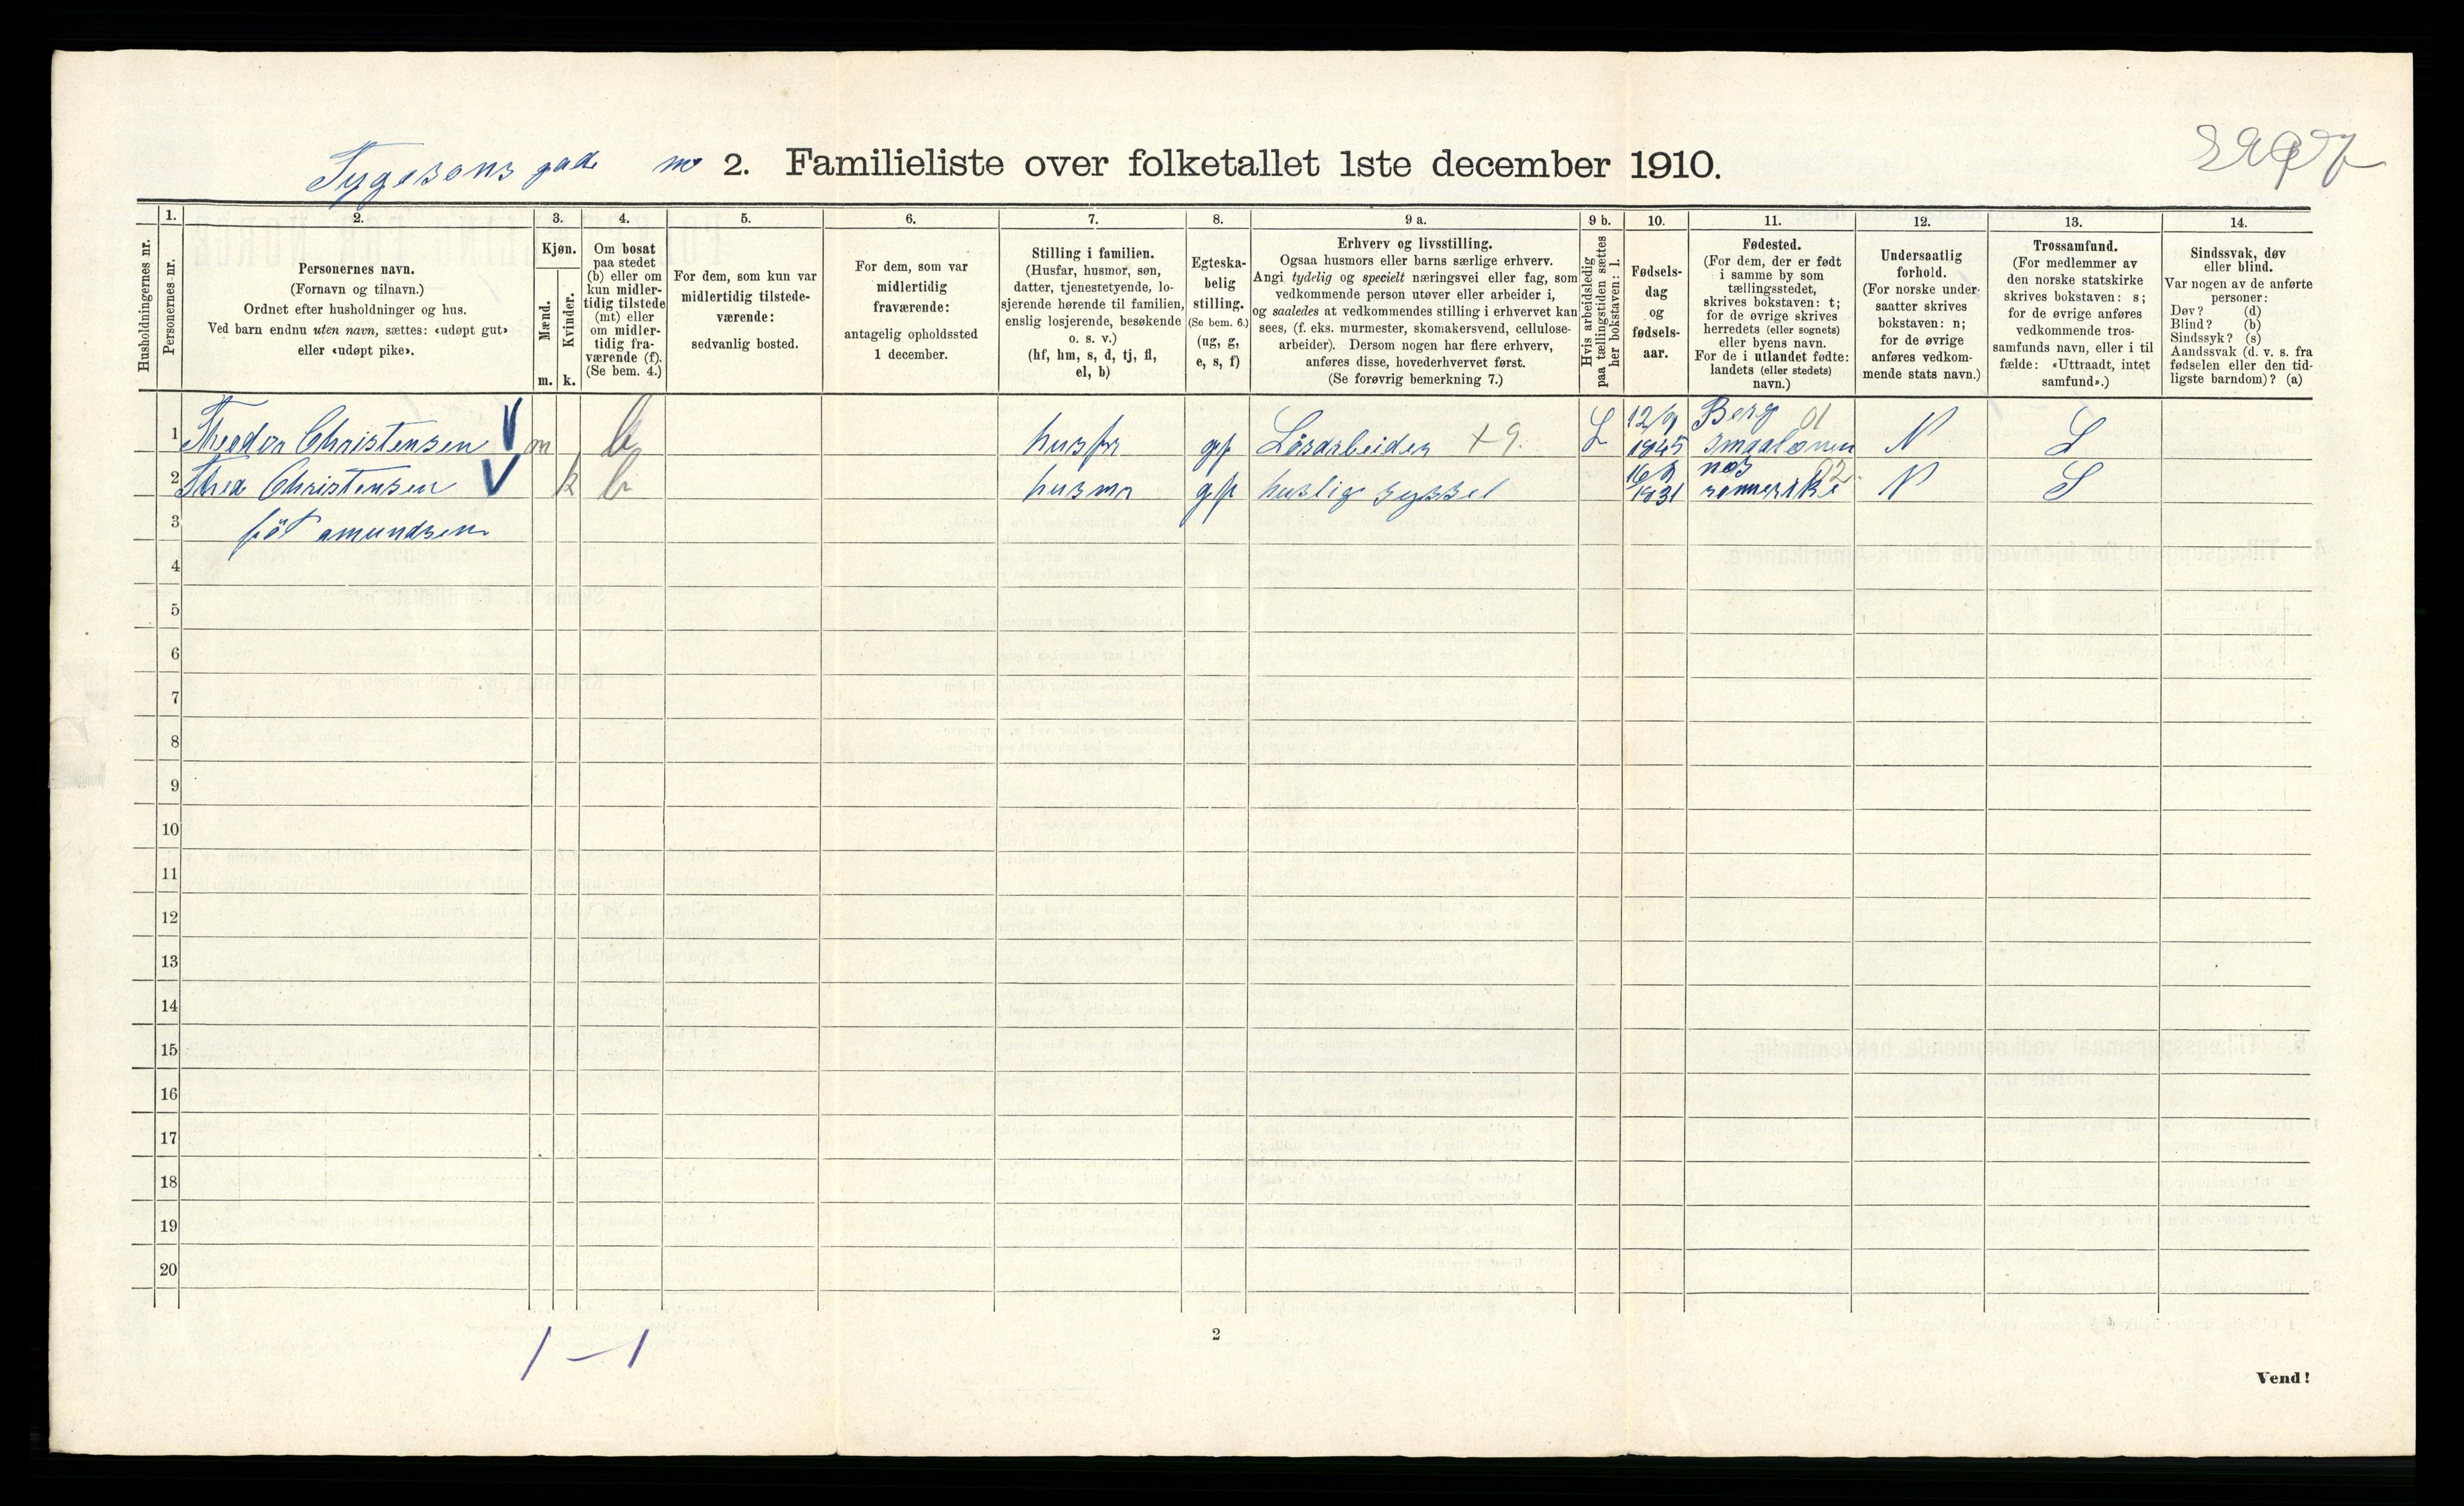 Tygesons gade no 2. Familieliste over folketallet 1ste december 1910.
Husholdningernes nr.
1.
Personernes nr.
2.
Personernes navn.
(Fornavn og tilnavn.)
Ordnet efter husholdninger og hus.
Ved barn endnu uten navn, sættes: «udøpt gut»
eller «udøpt pike».
3.
Kjøn.
Mænd.
m.
Kvinder.
k.
4.
Om bosat
paa stedet
(b) eller om
kun midler-
tidig tilstede
(mt) eller
om midler-
tidig fra-
værende (f).
(Se bem. 4.)
5.
For dem, som kun var
midlertidig tilstede-
værende:
sedvanlig bosted.
6.
For dem, som var
midlertidig
fraværende:
antagelig opholdssted
1 december.
7.
Stilling i familien.
(Husfar, husmor, søn,
datter, tjenestetyende, lo-
sjerende hørende til familien,
enslig losjerende, besøkende
o. s. v.)
(hf, hm, s, d, tj, fl,
el, b)
8.
Egteska-
belig
stilling.
(Se bem. 6.)
(ug, g,
e, s, f)
9 a.
Erhverv og livsstilling.
Ogsaa husmors eller barns særlige erhverv.
Angi tydelig og specielt næringsvei eller fag, som
vedkommende person utøver eller arbeider i,
og saaledes at vedkommendes stilling i erhvervet kan
sees, (f. eks. murmester, skomakersvend, cellulose-
arbeider). Dersom nogen har flere erhverv,
anføres disse, hovederhvervet først.
(Se forøvrig bemerkning 7.)
9 b.
Hvis arbeidsledig
paa tællingstiden sættes
her bokstaven: l.
10.
Fødsels-
dag
og
fødsels-
aar.
11.
Fødested.
(For dem, der er født
i samme by som
tællingsstedet,
skrives bokstaven: t;
for de øvrige skrives
herredets (eller sognets)
eller byens navn.
For de i utlandet fødte:
landets (eller stedets)
navn.)
12.
Undersaatlig
forhold.
(For norske under-
saatter skrives
bokstaven: n;
for de øvrige
anføres vedkom-
mende stats navn.)
13.
Trossamfund.
(For medlemmer av
den norske statskirke
skrives bokstaven: s;
for de øvrige anføres
vedkommende tros-
samfunds navn, eller i til
fælde: «Uttraadt, intet
samfund».)
14.
Sindssvak, døv
eller blind.
Var nogen av de anførte
personer:
Døv? (d)
Blind? (b)
Sindssyk? (s)
Aandssvak (d. v. s. fra
fødselen eller den tid-
ligste barndom)? (a)
1 Theodor Christensen m b husfr gf Lösarbeider +9. L 12/9 1845 Berg 01 smaalenen N S
2 Thea Christensen k b husmr gf huslig syssel 1831 02 N S
3 föt amundsen
4
5
6
7
8
9
10
11
12
13
14
15
16
17
18
19
20
1 – 1
2
Vend!